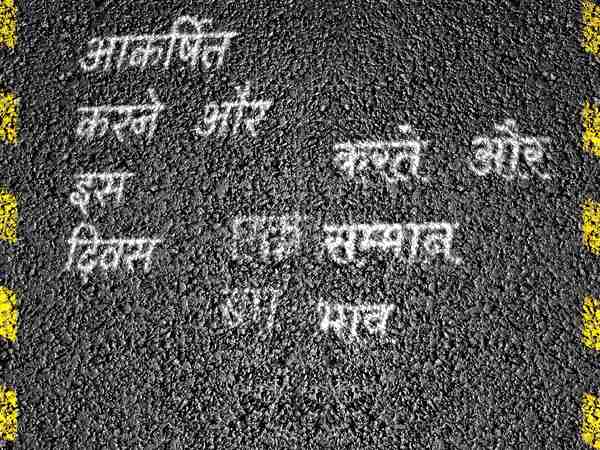 आकर्षित
करने और
इस
दिवस
करते और
सम्मान
भाव